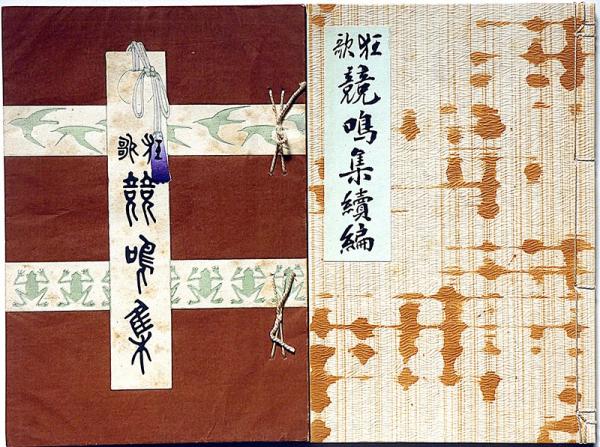 狂歌 競鳴集
狂歌 競鳴集續編